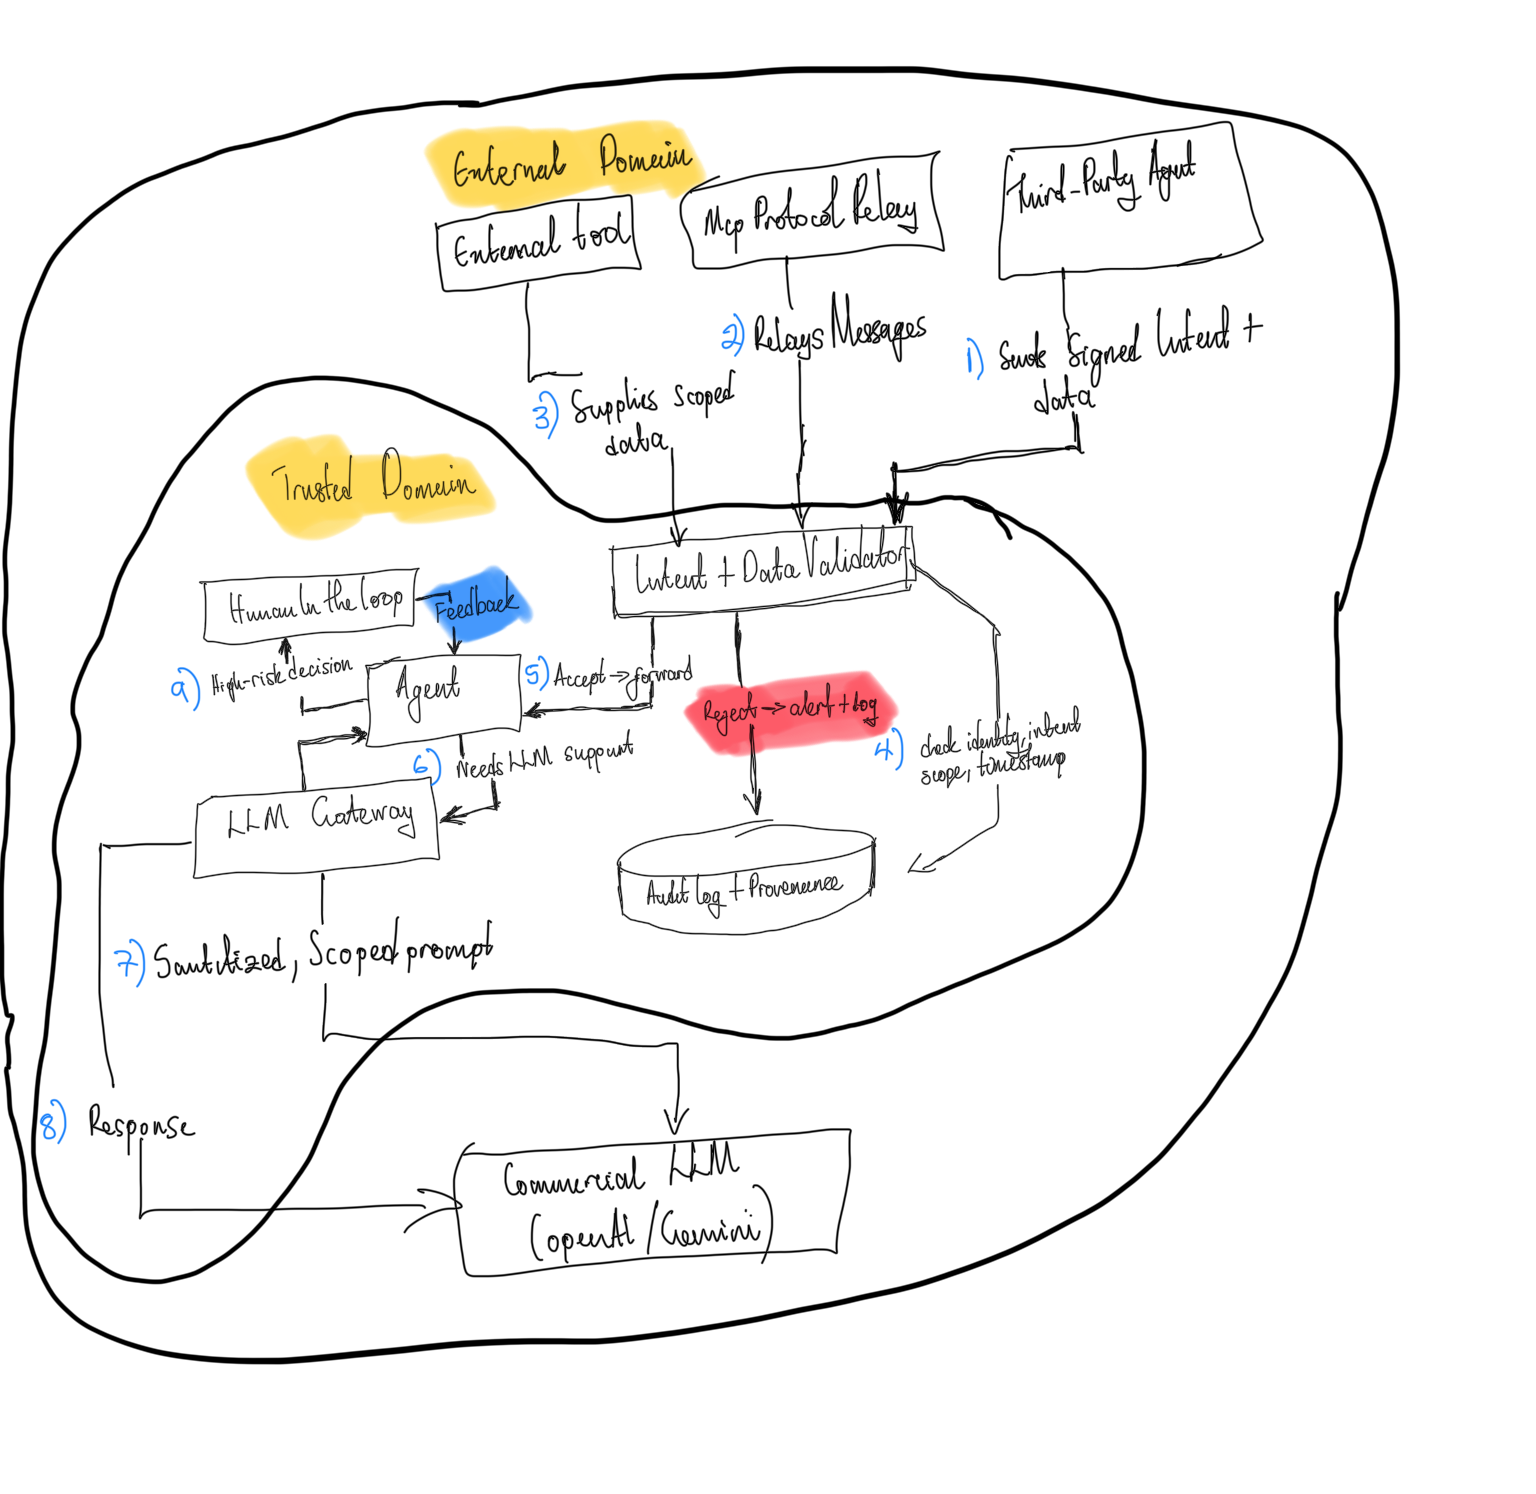 External Domain
External tool
Mcp Protocol Relay
Third-Party Agent
1) Sends Signed Intent +
data
2) Relays Messages
3) Supplies scoped
data
Trusted Domain
Intent + Data Validator
Human In the loop
Feedback
9) High-risk decision
Agent
5) Accept → forward
Reject → alert + log
4) check identity, intent
scope, timestamp
6) Needs LLM support
LLM Gateway
Audit log + Provenence
7) Sanitized, Scoped prompt
8) Response
Commercial LLM
(openAI / Gemini)